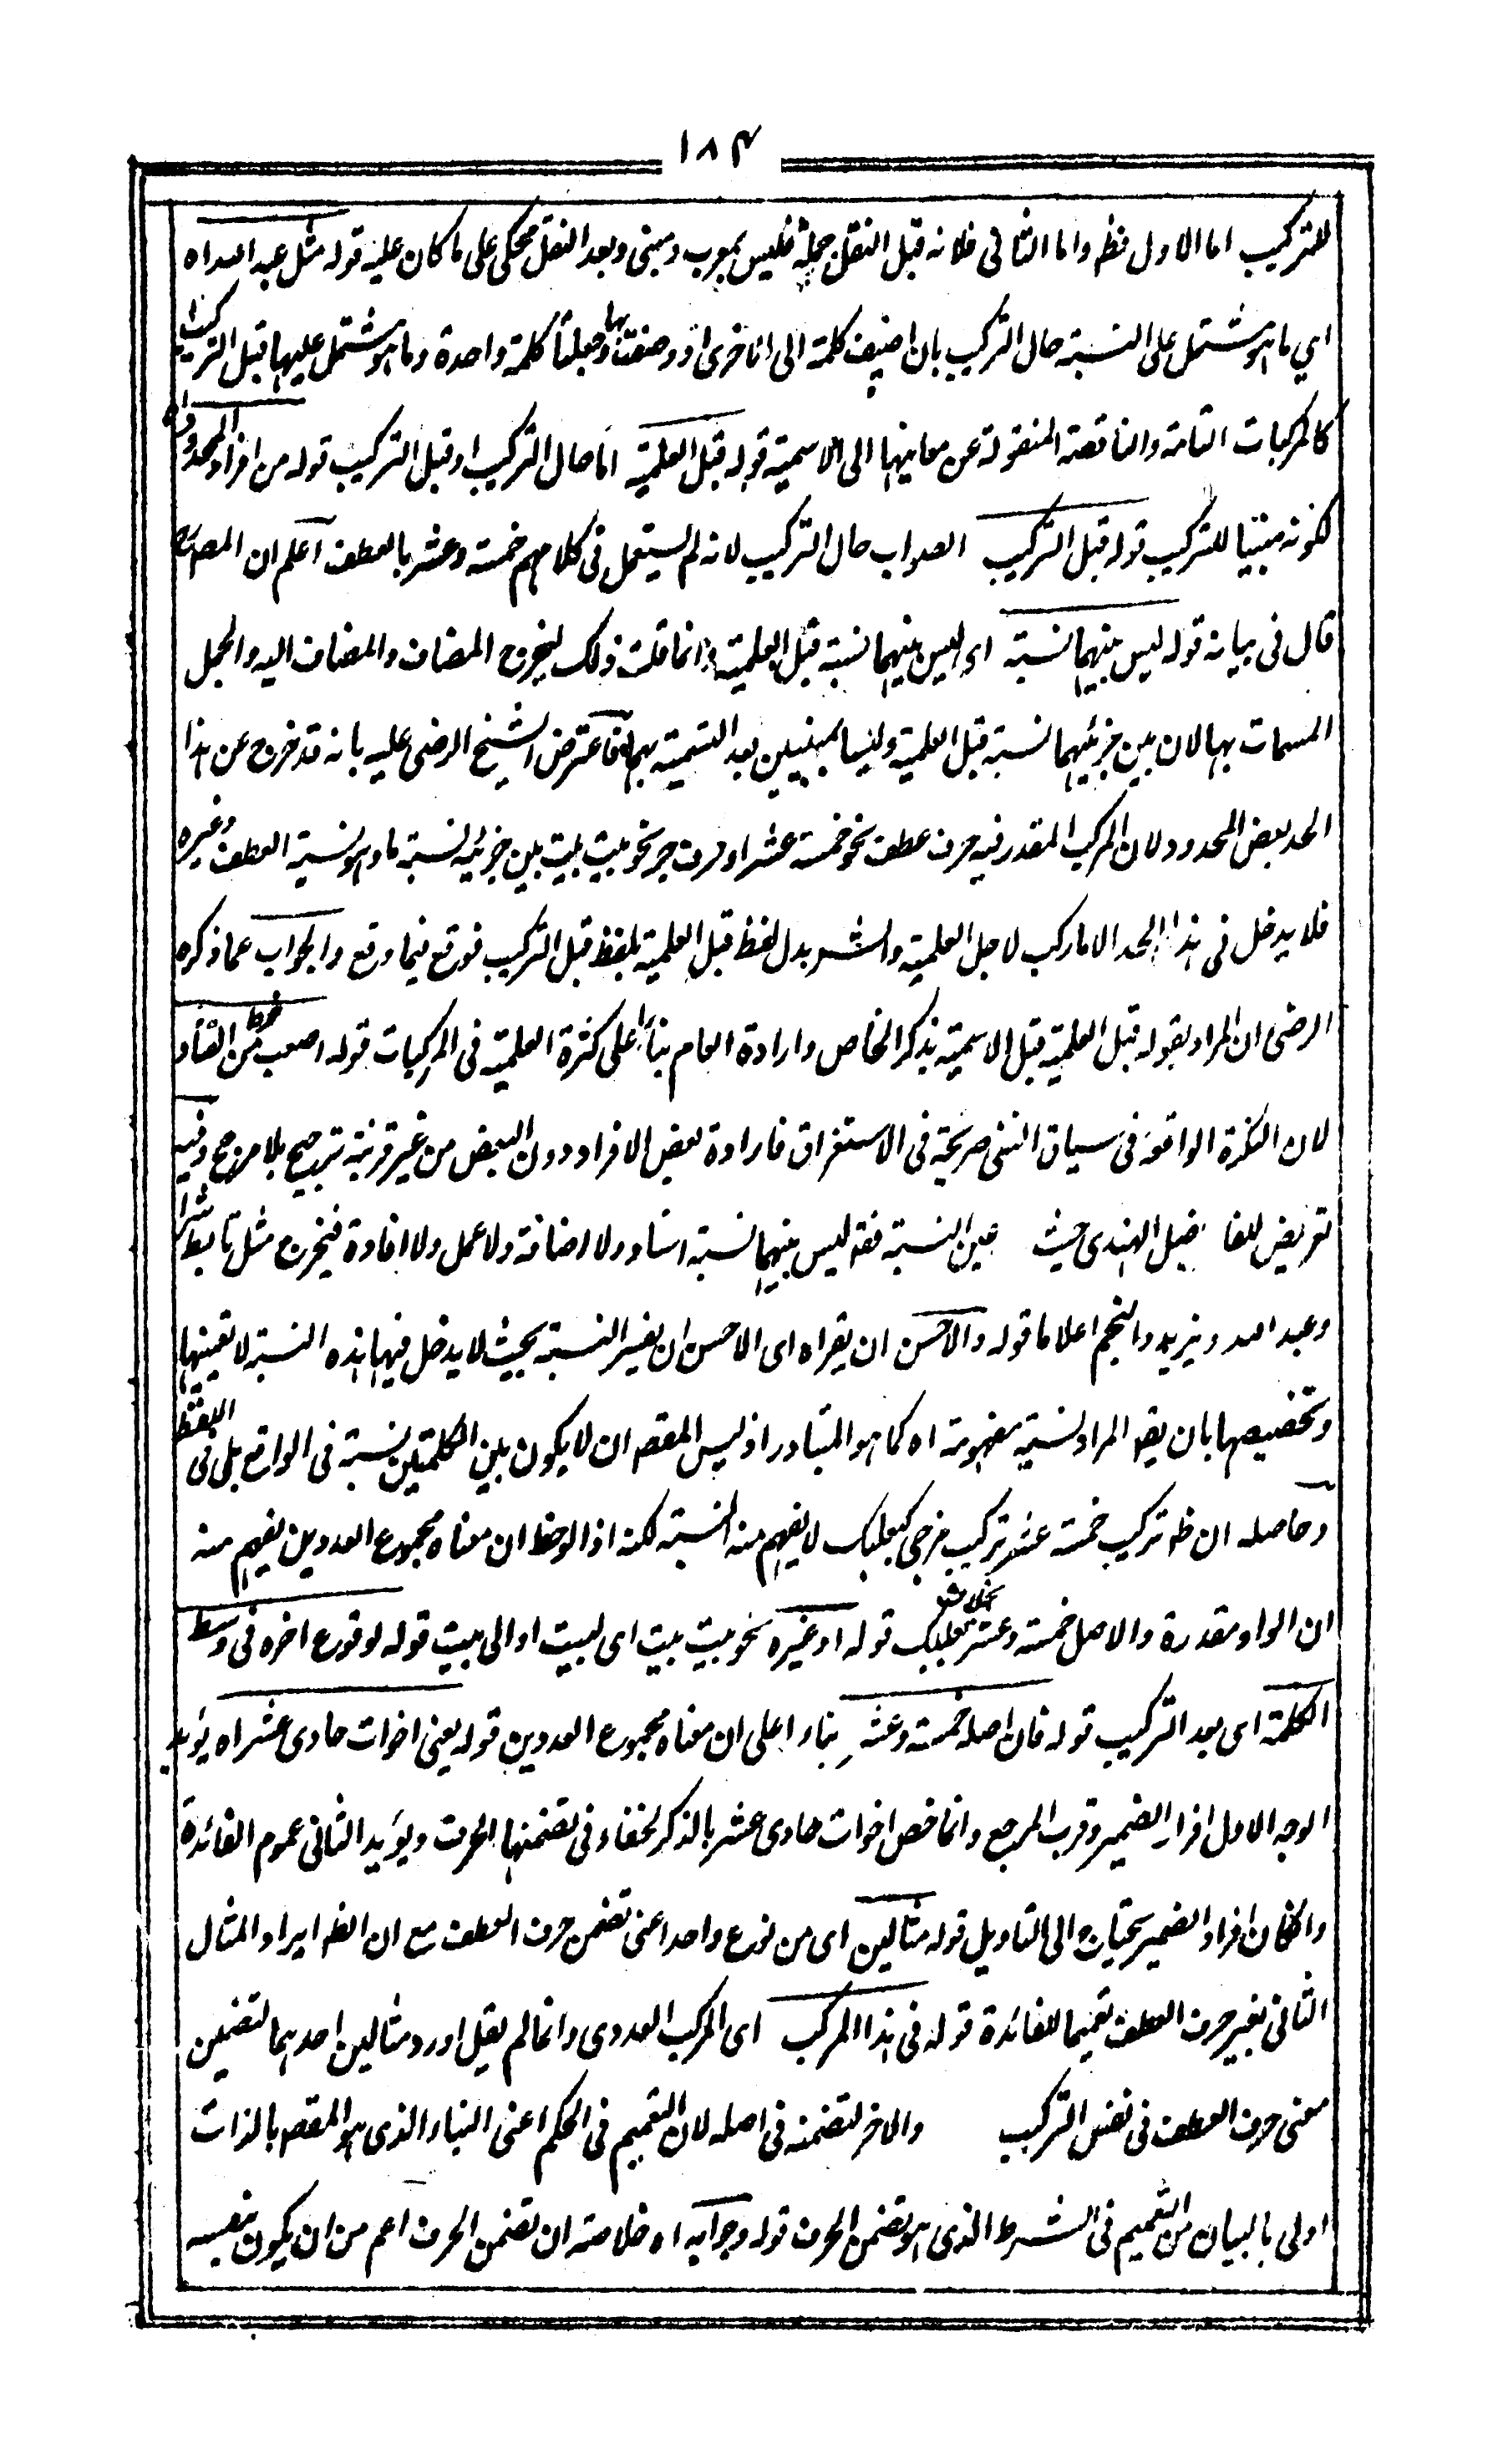 ١٨٤
للتركيب اما الاول فظ واما الثانى فلانه قبل النقل جملة فليس بمعرب ومبنى وبعد النقل محكى على ما كان عليه قوله مثل عبد الله اه
اي ما هو مشتمل على النسبة حال التركيب بان اضيف كلمة الى اخرى او وصفت بها وجعلتا كلمة واحدة وما هو مشتمل عليها قبل التركيب
كالمركبات التامة والناقصة المنقولة عن معانيها الى الاسمية قوله قبل العلمية اما حال التركيب او قبل التركيب قوله من افراد المحدود اه
لكونه مبنيا للتركيب قوله قبل التركيب الصواب حال التركيب لانه لم يستعمل فى كلامهم خمسة وعشر بالعطف اعلم ان المصنف
قال فى بيانه قوله ليس بينهما نسبة اى ليس بينهما نسبة قبل العلمية وانما قلت ذلك ليخرج المضاف والمضاف اليه والجمل
المسمات بها لان بين جزئيهما نسبة قبل العلمية وليسا بمبنيين بعد التسمية بهما فاعترض الشيخ الرضى عليه بانه قد خرج عن هذا
الحد بعض المحدود لان المركب المقدر فيه حرف عطف نحو خمسة عشر او حرف جر نحو بيت بيت بين جزئيه نسبة ما وهو نسبة العطف وغيره
فلا يدخل فى هذا الحد الا ما ركب لاجل العلمية والشر بدل لفظ قبل العلمية بلفظ قبل التركيب فوقع فيما وقع والجواب عما ذكره
الرضى ان المراد بقوله قبل العلمية قبل الاسمية بذكر الخاص وارادة العام بناء على كثرة العلمية فى المركبات قوله اصعب من خرط القتاد
لان النكرة الواقعة فى سياق النفى صريحة فى الاستغراق فارادة بعض الافراد دون البعض من غير قرينة ترجيح بلا مرجح وفيه
تعريض للفا ضل الهندى حيث عين النسبة فقه ليس بينهما نسبة اسناد ولا اضافة ولا عمل ولا افادة فيخرج مثل تابط شرا
وعبد الله ويزيد والنجم اعلاما قوله والاحسن ان يقراه اى الاحسن ان يفسر النسبة بحيث لا يدخل فيها هذه النسبة لا تعينيها
وتخصيصها بان يقه المراد نسبة مفهومة اه كما هو المتبادر اذ ليس المقصه ان لا يكون بين الكلمتين نسبة فى الواقع بل فى اللفظ
وحاصله ان ظه تركيب خمسة عشر تركيب مزجى كبعلبك لا يفهم منه النسبة لكنه اذا لوحظ ان معناه مجموع العددين يفهم منه
ان الواو مقدرة والاصل خمسة وعشر بخلاف بعلبك قوله او غيره نحو بيت بيت اى لبيت او الى بيت قوله لوقوع اخره فى وسط
الكلمة اى بعد التركيب قوله فان اصله خمسة وعشر بناء اعلى ان معناه مجموع العددين قوله يعنى اخوات حادى عشر اه يؤيد
الوجه الاول افراد الضمير وقرب المرجع وانما خص اخوات حادى عشر بالذكر لخفاء فى تضمنها الحرف ويؤيد الثانى عموم الفائدة
وان كان افراد الضمير يحتاج الى التاويل قوله مثالين اى من نوع واحد اعنى تضمن حرف العطف مع ان الظه ايراد المثال
الثانى بغير حرف العطف تعميما للفائدة قوله فى هذا المركب اى المركب العددى وانما لم يقل اورد مثالين احدهما لتضمين
معنى حرف العطف فى نفس التركيب والاخر لتضمنه فى اصله لان التعميم فى الحكم اعنى البناء الذى هو المقصه بالذات
اولى بالبيان من التعميم فى الشرط الذى هو تضمن الحرف قوله وجوابه اه خلاصته ان تضمن الحرف اعم من ان يكون بنفسه